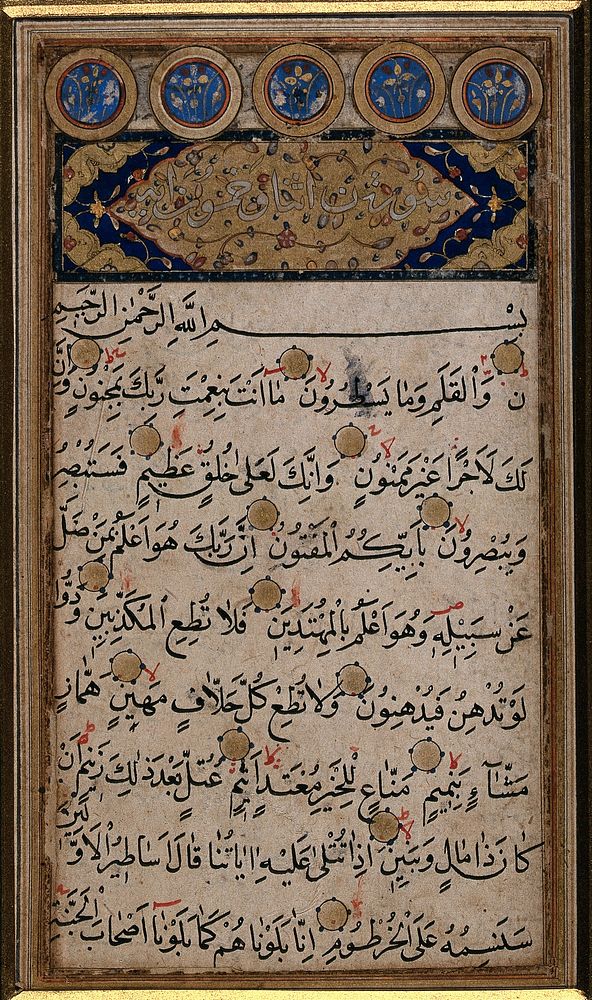 سورة ن اثنان و خمسون آية
بِسْمِ اللهِ الرَّحْمٰنِ الرَّحِيمِ
ن وَالْقَلَمِ وَمَا يَسْطُرُونَ مَا اَنْتَ بِنِعْمَتِ رَبِّكَ بِمَجْنُونٍ وَاِنَّ
لَكَ لَاَجْرًا غَيْرَ مَمْنُونٍ وَاِنَّكَ لَعَلٰى خُلُقٍ عَظِيمٍ فَسَتُبْصِرُ
وَيُبْصِرُونَ بِاَيِّكُمُ الْمَفْتُونُ اِنَّ رَبَّكَ هُوَ اَعْلَمُ بِمَنْ ضَلَّ
عَنْ سَبِيلِهِ وَهُوَ اَعْلَمُ بِالْمُهْتَدِينَ فَلَا تُطِعِ الْمُكَذِّبِينَ وَدُّوا
لَوْ تُدْهِنُ فَيُدْهِنُونَ وَلَا تُطِعْ كُلَّ حَلَّافٍ مَهِينٍ هَمَّازٍ
مَشَّاۤءٍ بِنَمِيمٍ مَنَّاعٍ لِلْخَيْرِ مُعْتَدٍ اَثِيمٍ عُتُلٍّ بَعْدَ ذٰلِكَ زَنِيمٍ اَنْ
كَانَ ذَا مَالٍ وَبَنِينَ اِذَا تُتْلٰى عَلَيْهِ اٰيَاتُنَا قَالَ اَسَاطِيرُ الْاَوَّلِينَ
سَنَسِمُهُ عَلَى الْخُرْطُومِ اِنَّا بَلَوْنَاهُمْ كَمَا بَلَوْنَا اَصْحَابَ الْجَنَّةِ